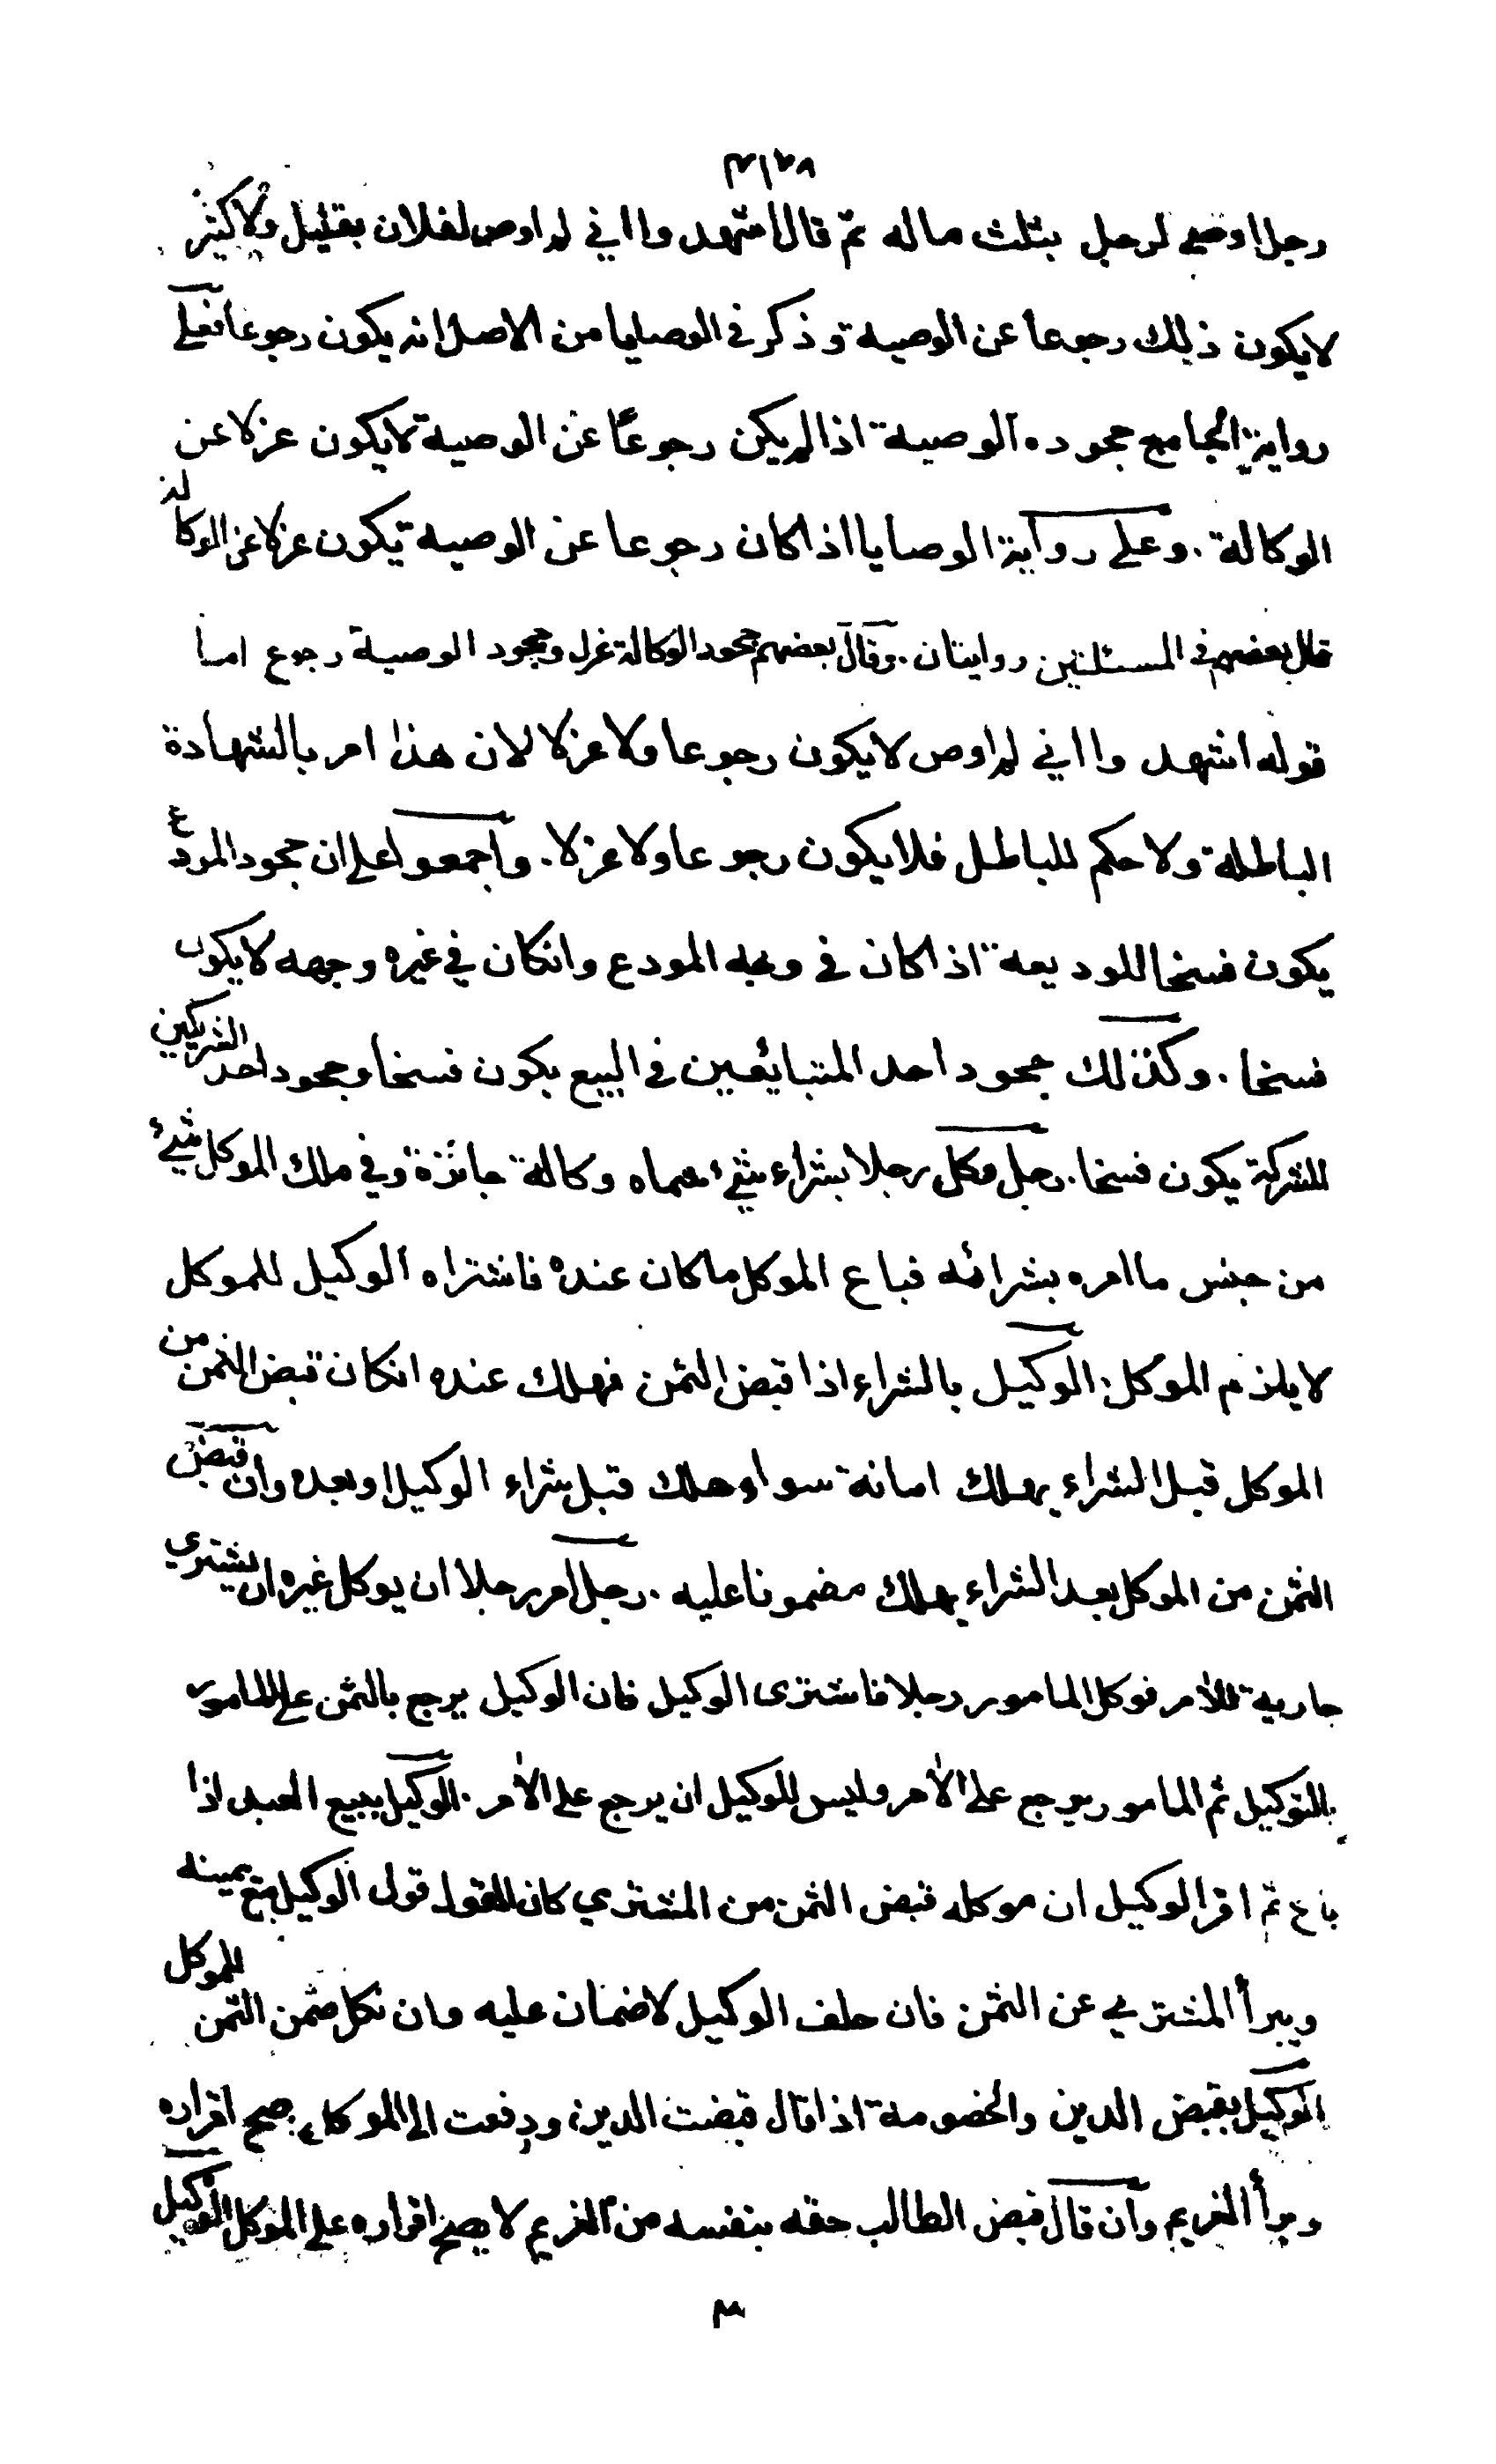 ٣١٢٨
رجل اوصى لرجل بثلث ماله ثم قال اشهدوا اني لم اوص لفلان بقليل ولا كثير
لا يكون ذلك رجوعا عن الوصية وذكر في الوصايا من الاصل انه يكون رجوعا فعلى
رواية الجامع جحوده الوصية اذا لم يكن رجوعًا عن الوصية لا يكون عزلا عن
الوكالة . وعلى رواية الوصايا اذا كان رجوعا عن الوصية يكون عزلا عن الوكالة
قال بعضهم في المسئلتين روايتان . وقال بعضهم جحود الوكالة عزل وجحود الوصية رجوع اما
قوله اشهدوا اني لم اوص لا يكون رجوعا ولا عزلا لان هذا امر بالشهادة
الباطلة ولا حكم للباطل فلا يكون رجوعا ولا عزلا . واجمعوا على ان جحود المودع
يكون فسخا للوديعة اذا كان في وجه المودع وانكان في غيره وجهه لا يكون
فسخا . وكذلك جحود احد المتبائعين في البيع يكون فسخا وجحود احد الشريكين
للشركة يكون فسخا . رجل وكل رجلا بشراء شيء سماه وكالة جائزة وفي ملك الموكل شيئ
من جنس ما امره بشرائه فباع الموكل ما كان عنده فاشتراه الوكيل للموكل
لا يلزم الموكل . الوكيل بالشراء اذا قبض الثمن فهلك عنده انكان قبض الثمن من
الموكل قبل الشراء يهلك امانة سواء هلك قبل شراء الوكيل او بعده وان قبض
الثمن من الموكل بعد الشراء يهلك مضمونا عليه . رجل امر رجلا ان يوكل غيره ان يشتري
جارية للآمر فوكل المامور رجلا فاشترى الوكيل فان الوكيل يرجع بالثمن على المامور
بالتوكيل ثم المامور يرجع على الآمر وليس للوكيل ان يرجع على الآمر . الوكيل ببيع العبد اذا
باع ثم اقر الوكيل ان موكله قبض الثمن من المشتري كان القول قول الوكيل مع يمينه
ويبرأ المشتري عن الثمن فان حلف الوكيل لا ضمان عليه وان نكل ضمن الثمن للموكل
الوكيل بقبض الدين والخصومة اذا قال قبضت الدين ودفعت الى الموكل يصح اقراره
ويبرأ الغريم وان قال قبض الطالب حقه بنفسه من الغريم لا يصح اقراره على الموكل الوكيل